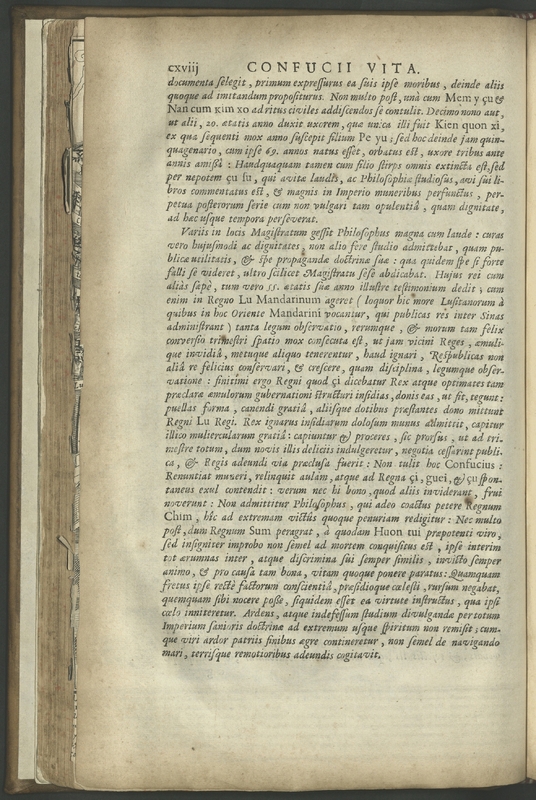 cxviij CONFUCII VITA.
documenta selegit, primum expressurus ea suis ipse moribus, deinde aliis
quoque ad imitandum propositurus. Non multo post, unà cum Mem y çu &
Nan cum xim xo ad ritus civiles addiscendos se contulit. Decimo nono aut,
ut alii, 20. ætatis anno duxit uxorem, quæ unica illi fuit Kien quon xi,
ex qua sequenti mox anno suscepit filium Pe yu; sed hoc deinde jam quin-
quagenario, cum ipse 69. annos natus esset, orbatus est, uxore tribus ante
annis amissâ: Haudquaquam tamen cum filio stirps omnis extincta est, sed
per nepotem çu su, qui avitæ laudis, ac Philosophiæ studiosus, avi sui li-
bros commentatus est, & magnis in Imperio muneribus perfunctus, per-
petua posterorum serie cum non vulgari tam opulentiâ, quam dignitate,
ad hæc usque tempora perseverat.
Variis in locis Magistratum gessit Philosophus magna cum laude: curas
vero hujusmodi ac dignitates, non alio fere studio admittebat, quam pu-
blicæ utilitatis, & spe propagandæ doctrinæ suæ: qua quidem spe si forte
falli se videret, ultro scilicet Magistratu sese abdicabat. Hujus rei cum
aliàs sæpè, tum vero 55. ætatis suæ anno illustre testimonium dedit; cum
enim in Regno Lu Mandarinum ageret (loquor hic more Lusitanorum à
quibus in hoc Oriente Mandarini vocantur, qui publicas res inter Sinas
administrant) tanta legum observatio, rerumque, & morum tam felix
conversio trimestri spatio mox consecuta est, ut jam vicini Reges, æmuli-
que invidiâ, metuque aliquo tenerentur, haud ignari, Respublicas non
aliâ re felicius conservari, & crescere, quam disciplina, legumque obser-
vatione: finitimi ergo Regni quod çi dicebatur Rex atque optimates tam
præclaræ æmulorum gubernationi structuri insidias, donis eas, ut fit, tegunt:
puellas forma, canendi gratiâ, aliisque dotibus præstantes dono mittunt
Regni Lu Regi. Rex ignarus insidiarum dolosum munus admittit, capitur
illico muliercularum gratiâ: capiuntur & proceres, sic prorsus, ut ad tri-
mestre totum, dum novis illis deliciis indulgeretur, negotia cessarint publi-
ca, & Regis adeundi via præclusa fuerit: Non tulit hoc Confucius:
Renuntiat muneri, relinquit aulam, atque ad Regna çi, guei, & çu spon-
taneus exul contendit: verum nec hi bono, quod aliis inviderant, frui
noverunt: Non admittitur Philosophus, qui adeo coactus petere Regnum
Chim, hîc ad extremam victûs quoque penuriam redigitur: Nec multo
post, dum Regnum Sum peragrat, à quodam Huon tui præpotenti viro,
sed insigniter improbo non semel ad mortem conquisitus est, ipse interim
tot ærumnas inter, atque discrimina sui semper similis, invicto semper
animo, & pro causa tam bona, vitam quoque ponere paratus: Quamquam
fretus ipse rectè factorum conscientiâ, præsidioque cælesti, rursum negabat,
quemquam sibi nocere posse, siquidem esset ea virtute instructus, qua ipsi
cælo inniteretur. Ardens, atque indefessum studium divulgandæ per totum
Imperium sanioris doctrinæ ad extremum usque spiritum non remisit; cum-
que viri ardor patriis finibus ægre contineretur, non semel de navigando
mari, terrisque remotioribus adeundis cogitavit.